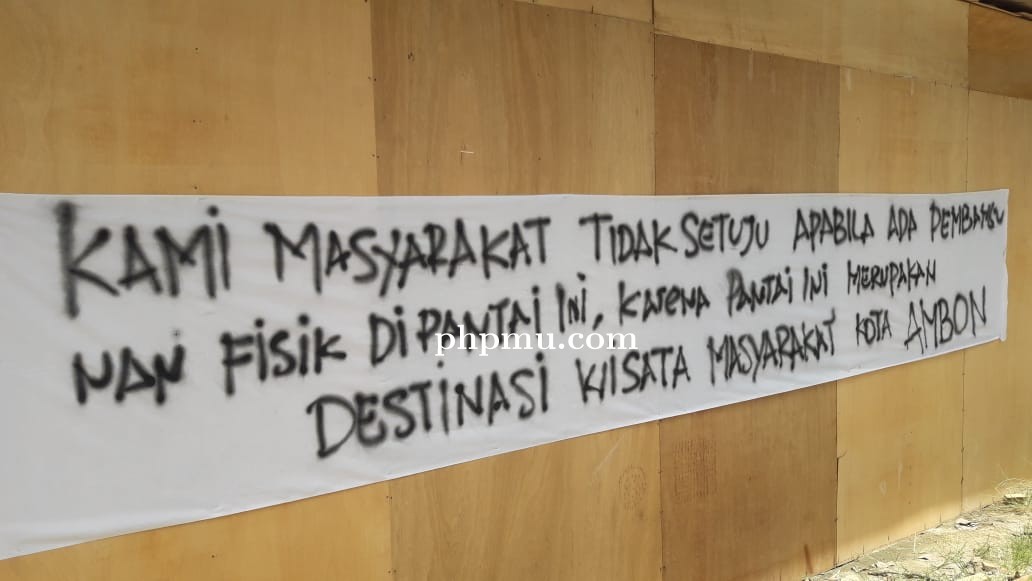 KAMI MASYARAKAT TIDAK SETUJU APABILA ADA PEMBANGU
NAN FISIK DI PANTAI INI, KARENA PANTAI INI MERUPAKAN
phpmu.com
DESTINASI WISATA MASYARAKAT KOTA AMBON